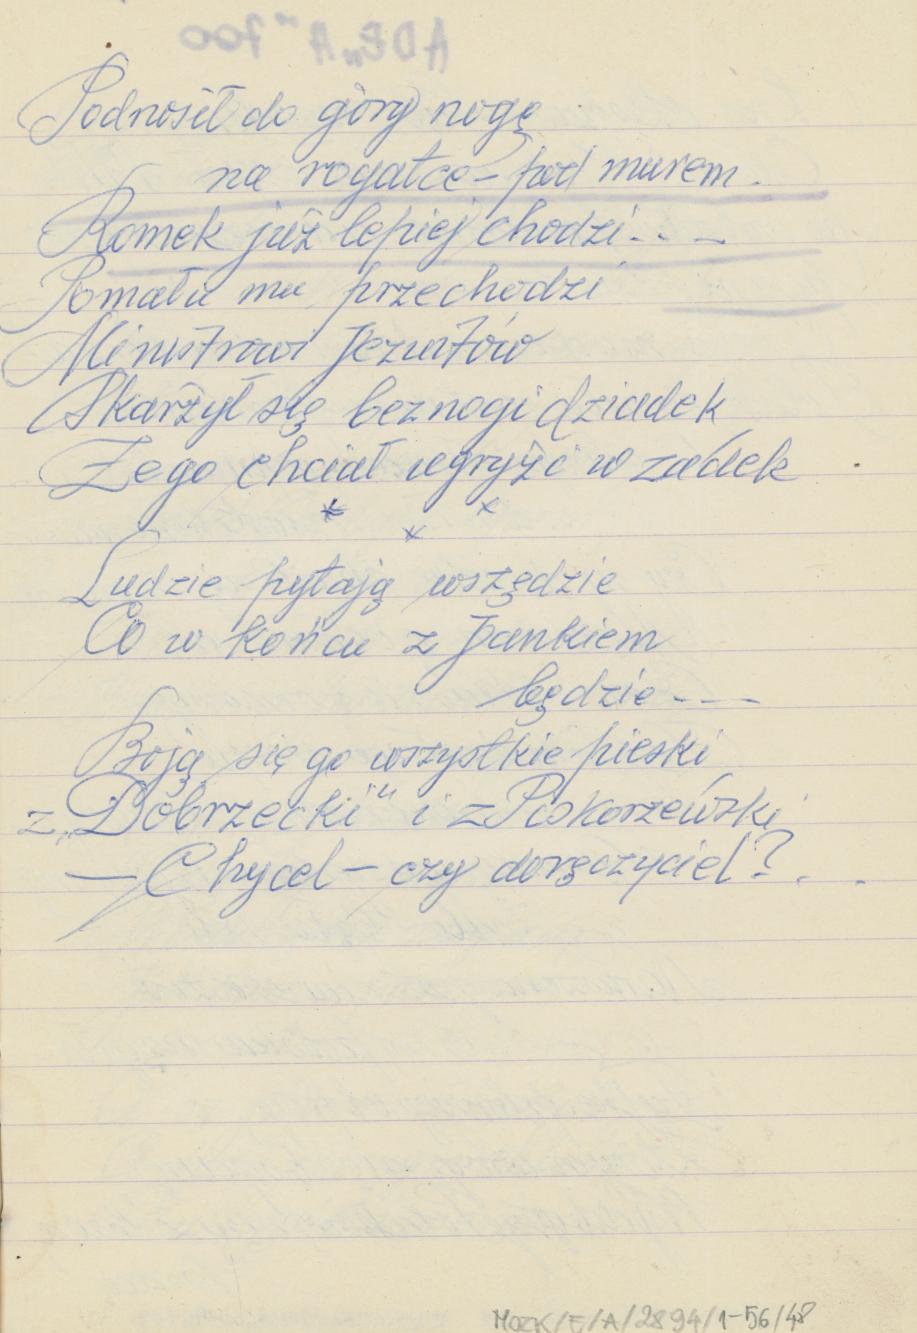 Podnosił do góry nogę
na rogatce – pod murem.
Romek już lepiej chodzi...
Pomału mu przechodzi
Ministrowi Jezuitów
Skarżył się beznogi dziadek
Że go chciał ugryźć w zadek
* * *
Ludzie pytają wszędzie
Co w końcu z Jankiem
będzie ---
Boją się go wszystkie pieski
z „Dobrzecki" i z Piskorzewski
– Chycel – czy doręczyciel? . .
MOZK/E/A/2894/1-56/48